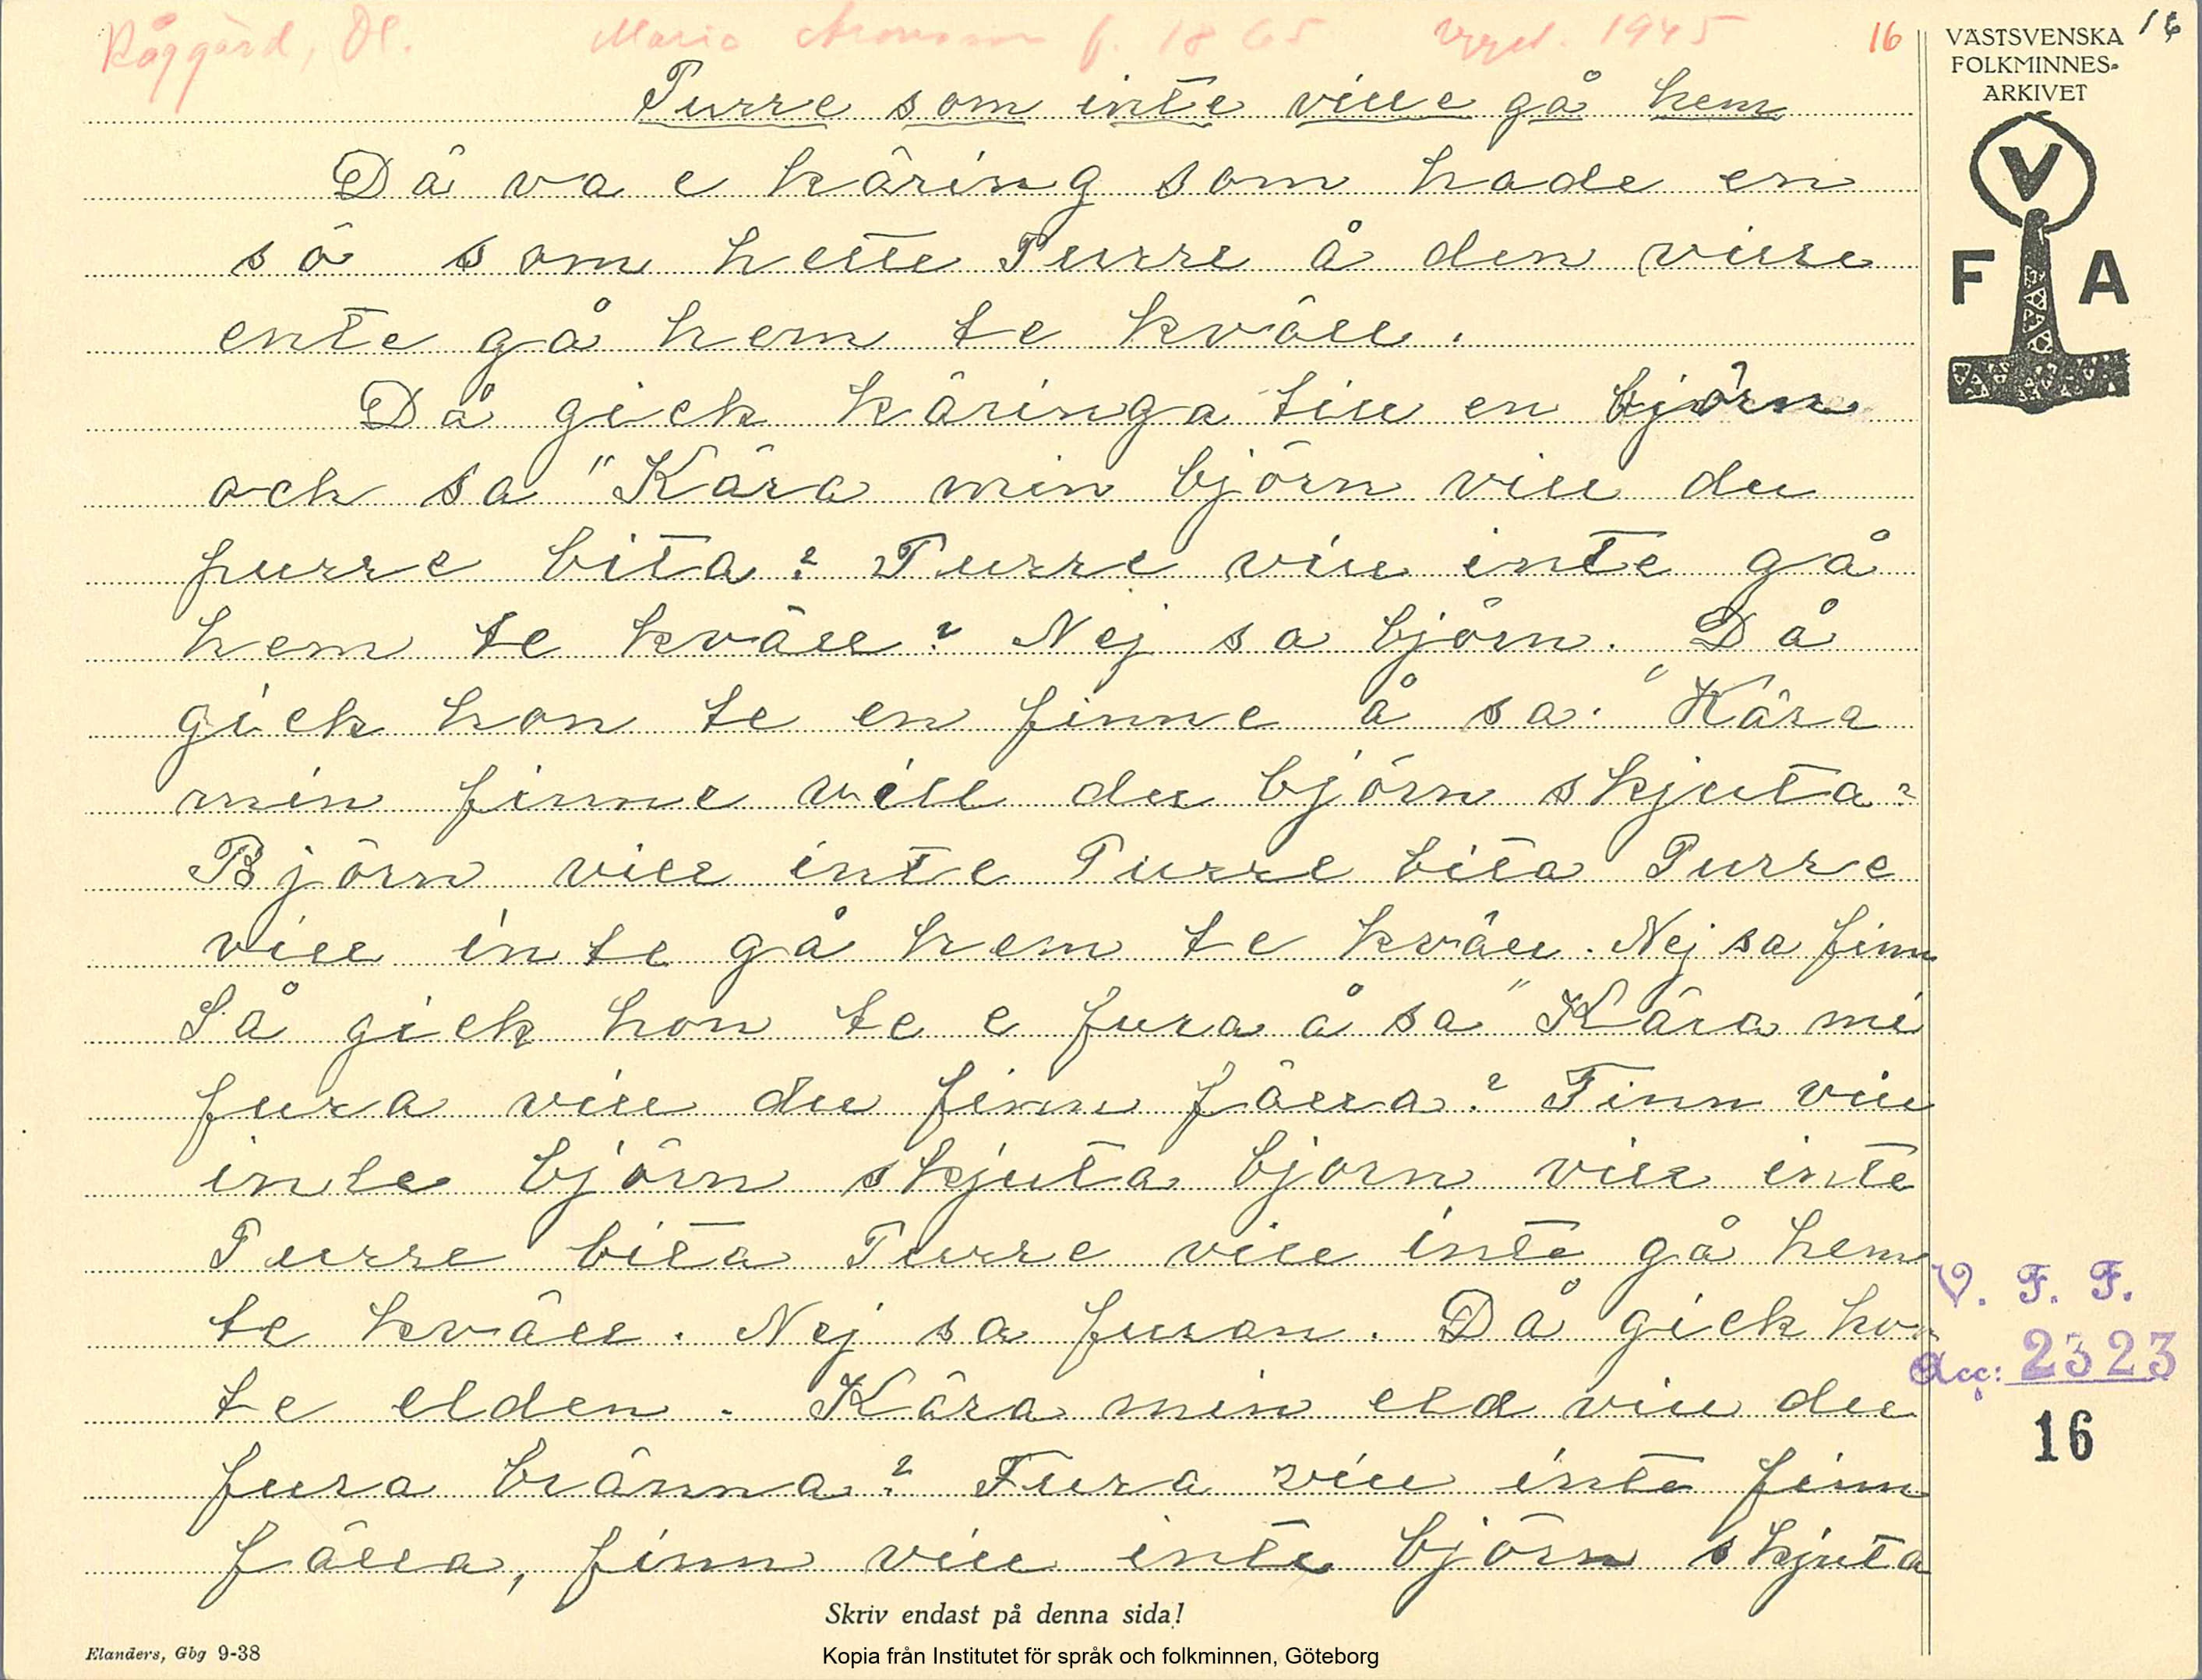 Råggärd, Dl. Maria Aronsson f. 1865 Uppt. 1945 16
16
VÄSTSVENSKA
FOLKMINNES-
ARKIVET
V
F A
Purre som inte ville gå hem
Då va e käring som hade en
so som hette Purre å den ville
ente gå hem te kväll.
Då gick käringa till en björn
och sa "Kära min björn vill du
purre bita? Purre vill inte gå
hem te kväll? Nej sa björn. Då
gick hon te en finne å sa. "Kära
min finne vill du björn skjuta?
Björn vill inte Purre bita Purre
vill inte gå hem te kväll. Nej sa finn
Så gick hon te e fura å sa "Kära mi
fura vill du finn fälla? Finn vill
inte björn skjuta björn vill inte
Purre bita Purre vill inte gå hem
te kväll. Nej sa furan. Då gick hon
te elden. Kära min eld vill du
fura bränna? Fura vill inte finn
fälla, finn vill inte björn skjuta
V. F. F.
Acc: 2323
16
Skriv endast på denna sida!
Elanders, Gbg 9-38
Kopia från Institutet för språk och folkminnen, Göteborg